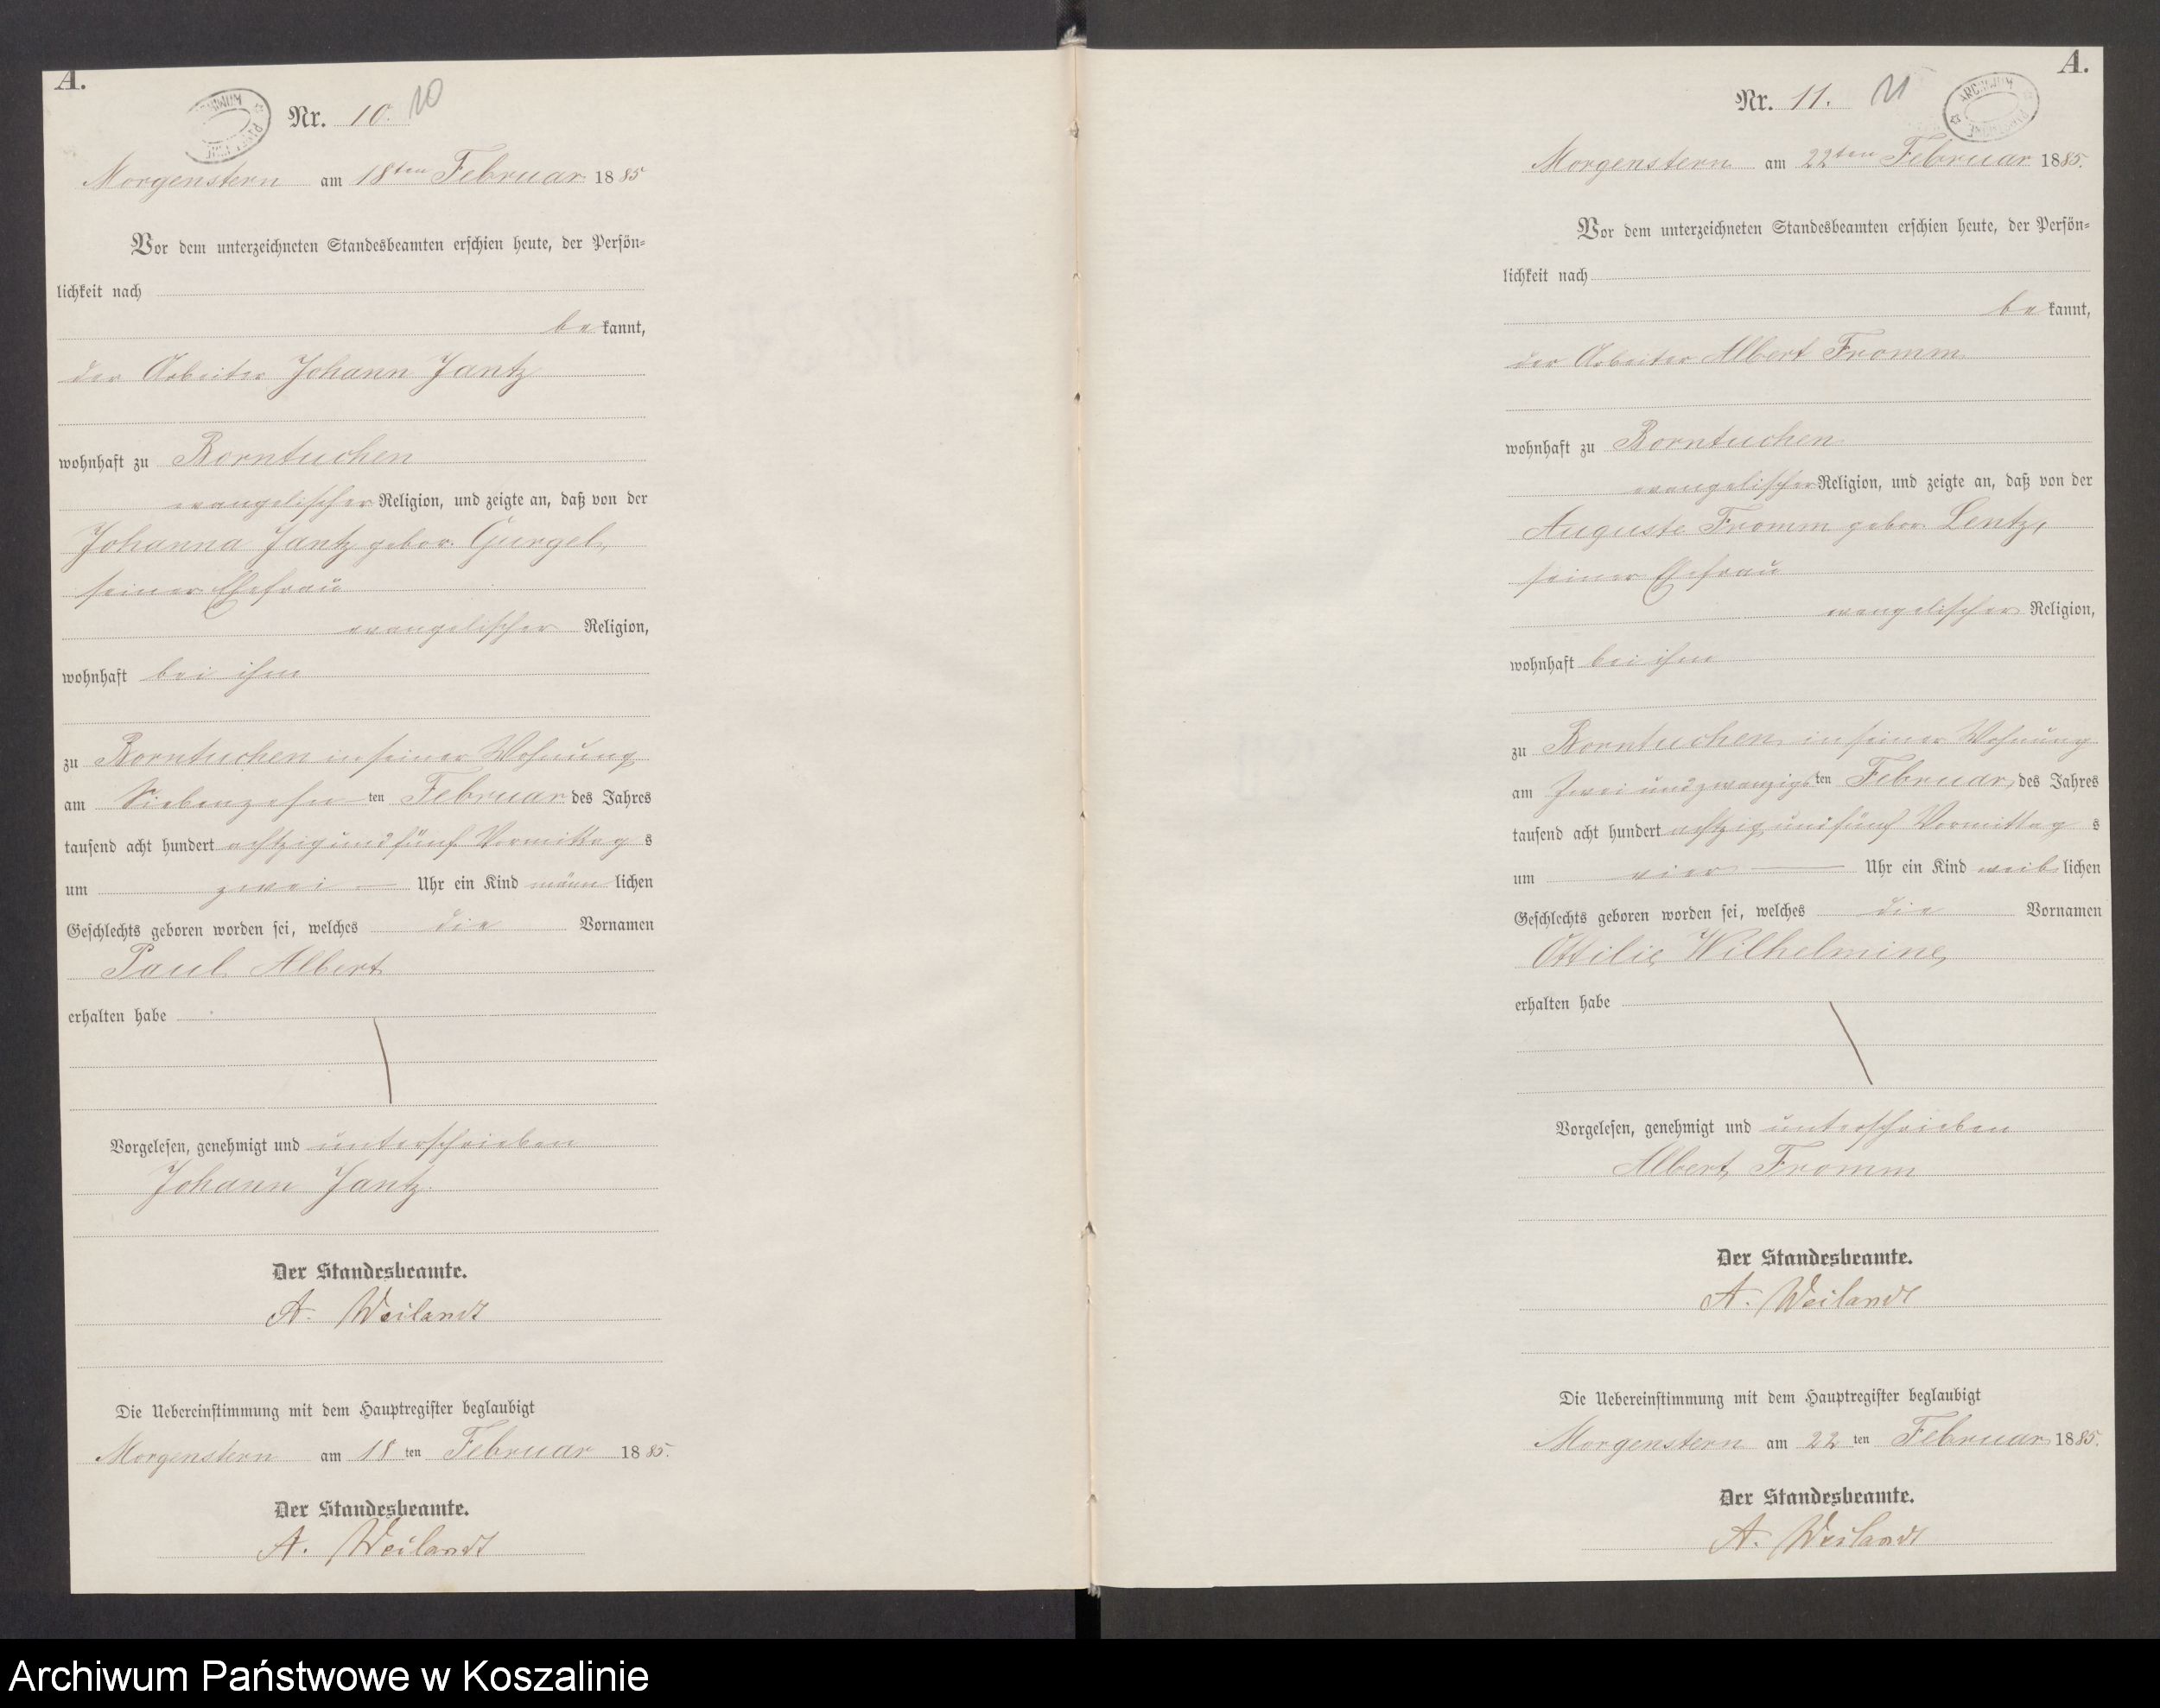 A.
Nr. 10. 10
Morgenstern am 18ten Februar 1885
Vor dem unterzeichneten Standesbeamten erschien heute, der Persön-
lichkeit nach
be kannt,
der Arbeiter Johann Jantz
wohnhaft zu Borntuchen
evangelischer Religion, und zeigte an, daß von der
Johanna Jantz gebor. Gurgel,
seiner Ehefrau
evangelischer Religion,
wohnhaft bei ihm
zu Borntuchen in seiner Wohnung
am Siebenzehn ten Februar des Jahres
tausend acht hundert achtzig und fünf Vormittag s
um zwei — Uhr ein Kind männ lichen
Geschlechts geboren worden sei, welches die Vornamen
Paul Albert
erhalten habe
Vorgelesen, genehmigt und unterschrieben
Johann Jantz.
Der Standesbeamte.
A. Weilandt
Die Uebereinstimmung mit dem Hauptregister beglaubigt
Morgenstern am 18 ten Februar 1885.
Der Standesbeamte.
A. Weilandt
A.
Nr. 11. 11
ARCHIWUM
Morgenstern am 22ten Februar 1885.
Vor dem unterzeichneten Standesbeamten erschien heute, der Persön-
lichkeit nach
be kannt,
der Arbeiter Albert Fromm
wohnhaft zu Borntuchen
evangelischer Religion, und zeigte an, daß von der
Auguste Fromm gebor. Lentz,
seiner Ehefrau
evangelischer Religion,
wohnhaft bei ihm
zu Borntuchen in seiner Wohnung
am Zwei und zwanzigs ten Februar, des Jahres
tausend acht hundert achtzig und fünf Vormittag s
um vier — Uhr ein Kind weib lichen
Geschlechts geboren worden sei, welches die Vornamen
Ottilie Wilhelmine,
erhalten habe
Vorgelesen, genehmigt und unterschrieben
Albert Fromm
Der Standesbeamte.
A. Weilandt
Die Uebereinstimmung mit dem Hauptregister beglaubigt
Morgenstern am 22 ten Februar 1885.
Der Standesbeamte.
A. Weilandt
Archiwum Państwowe w Koszalinie